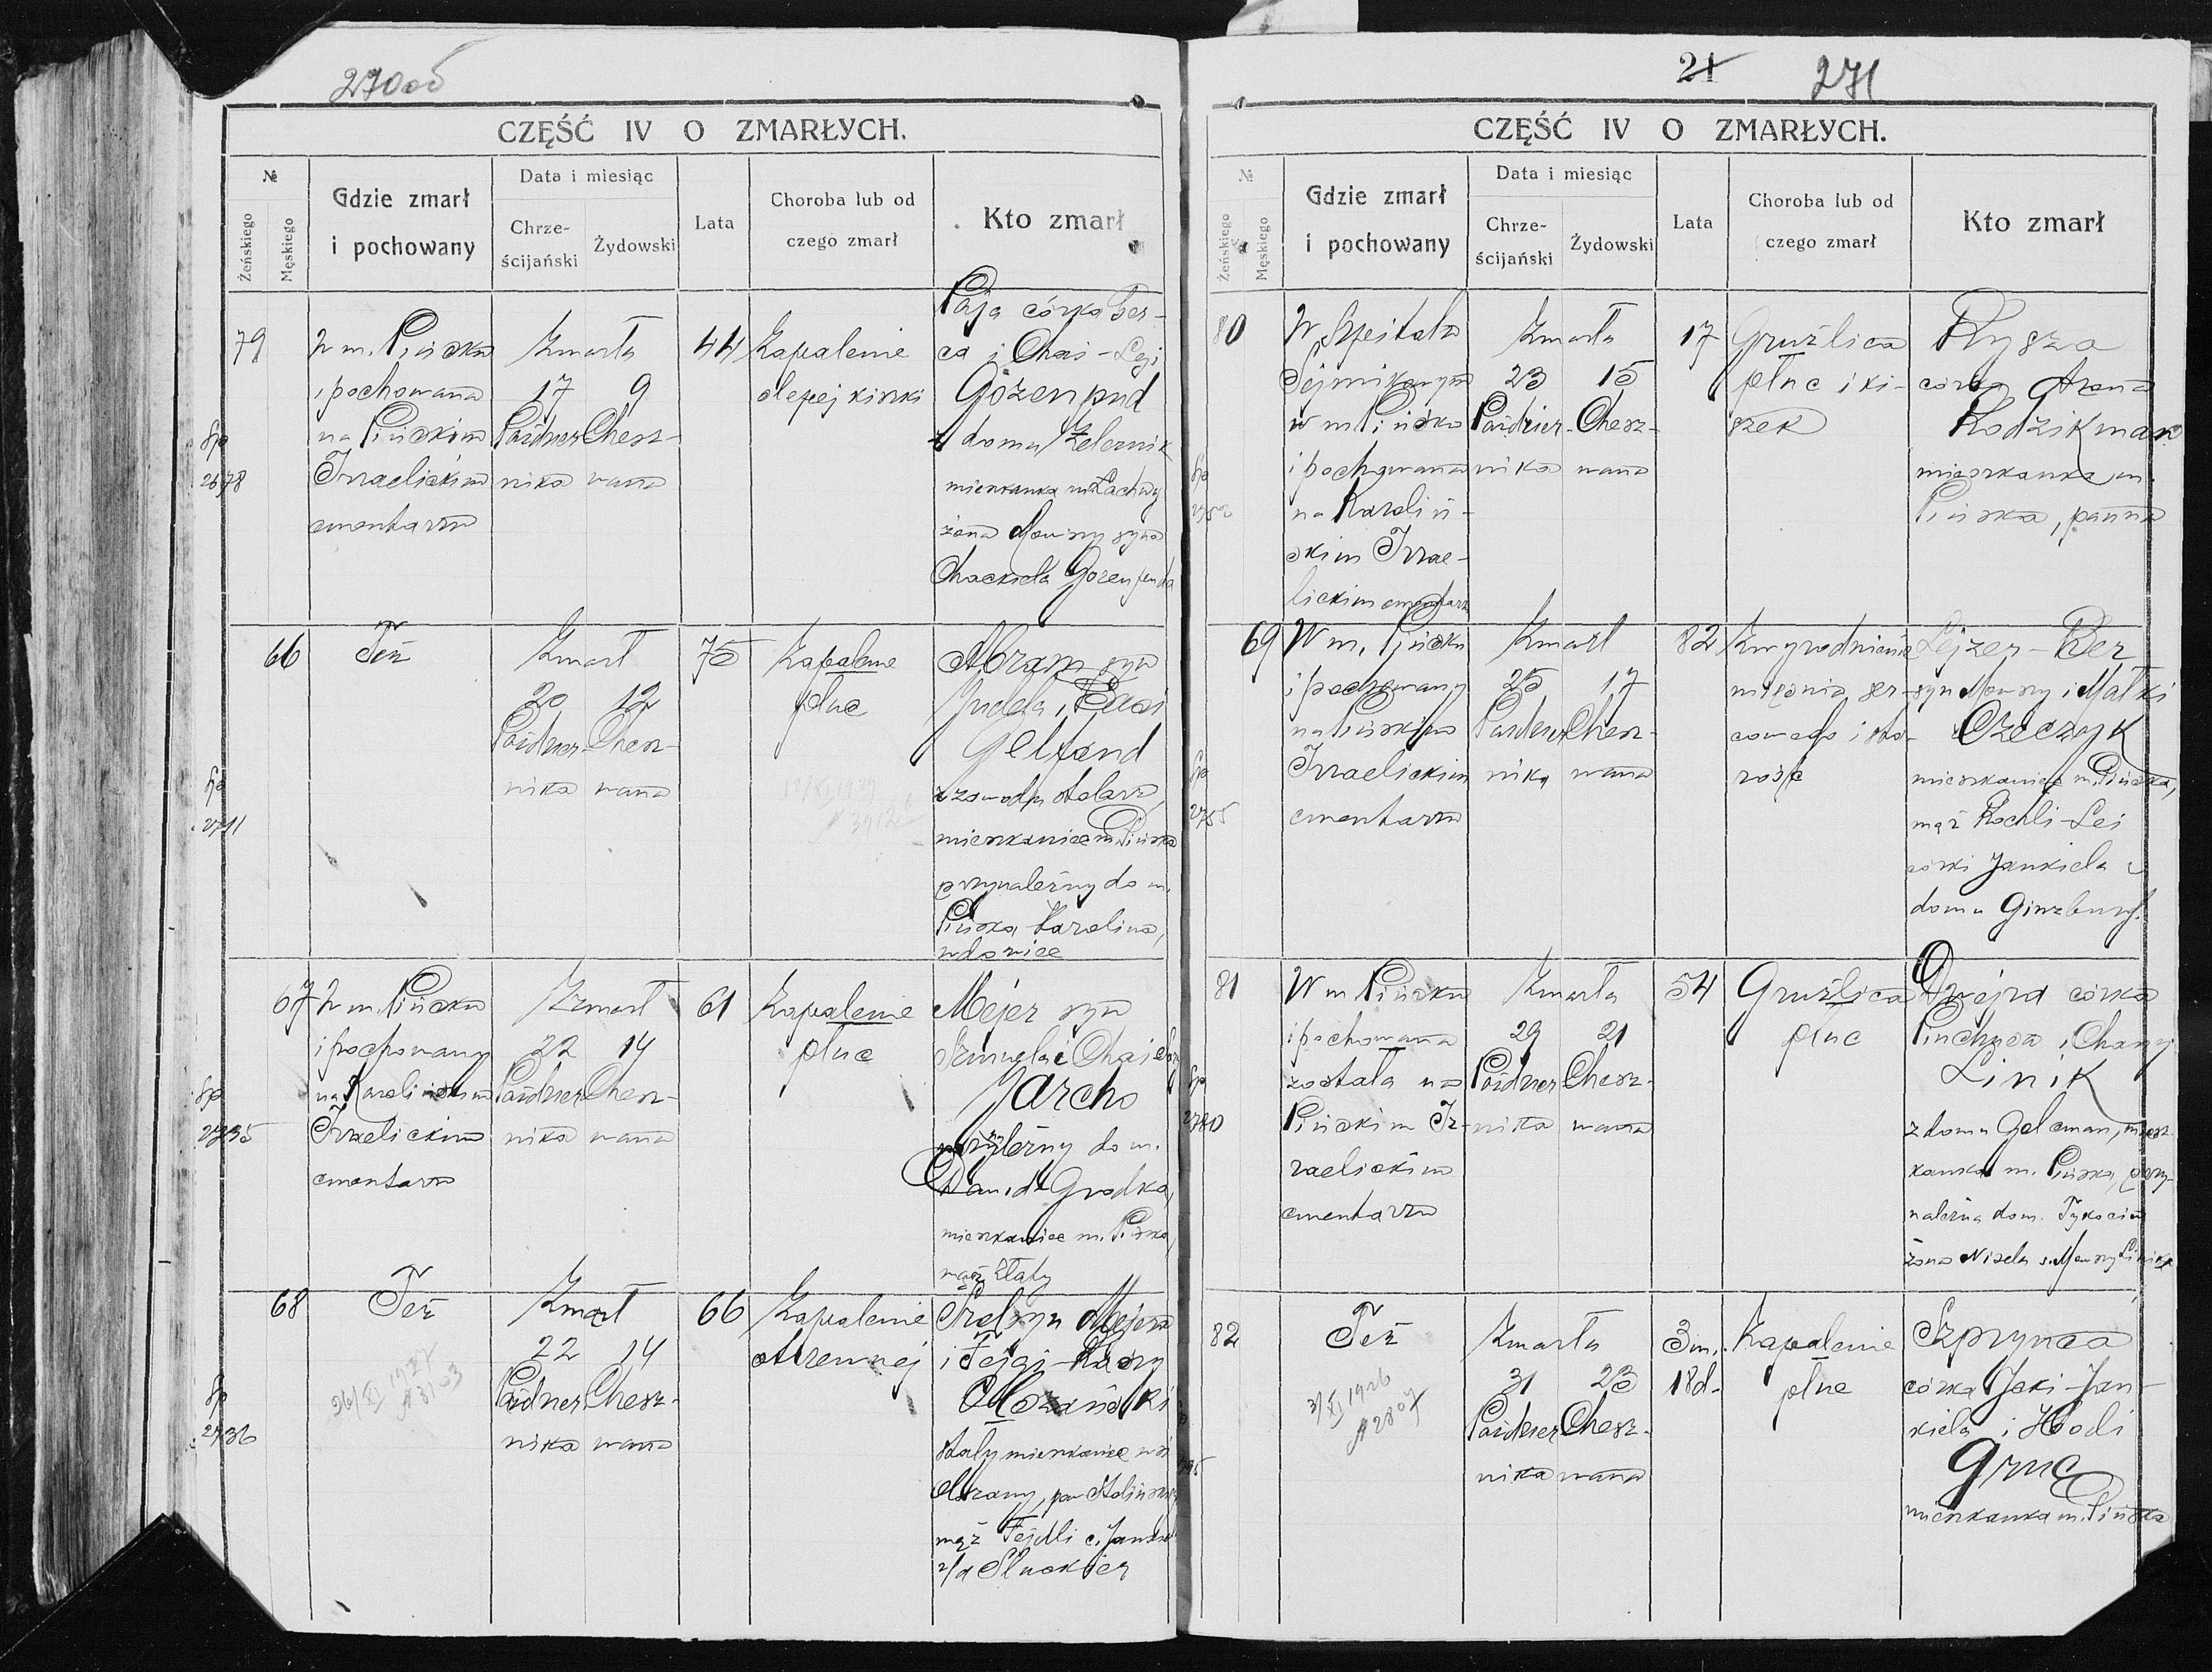 270об
CZĘŚĆ IV O ZMARŁYCH.
№
Żeńskiego
Męskiego
Gdzie zmarł
i pochowany
Data i miesiąc
Chrze-
ścijański
Żydowski
Lata
Choroba lub od
czego zmarł
Kto zmarł
79
W m. Pińsku
i pochowana
na Pińskim
Izraelickim
cmentarzu
Zmarła
17 9
Paździer Chesz-
nika wana
44
Zapalenie
ślepej kiszki
Paja córka Ber-
ca i Chai-Leji
Gozenpud
z domu Żeleznik
mieszkanka m Łachwy
żona Mowszy syna
Chackiela Gozenpuda
Sp
2678
66
Też
Zmarł
20 12
Paździer- Chesz-
nika wana
75
Zapalenie
płuc
Abram syn
Judela i Basi
Gelfand
z zawodu stolarz,
mieszkaniec m Pińska
przynależny do m.
Pińska Karolina,
wdowiec
Sp
2711
67
W m. Pińsku
i pochowany
na Karolińskim
Izraelickim
cmentarzu
Zmarł
22 14
Paździer Chesz-
nika wana
61
Zapalenie
płuc
Mejer syn
Szmuela i Chai
Jarcho
do m.
Dawid Gródka,
mieszkaniec m. Pińska,
mąż Złaty
Sp
2735
68
Też
26/XI 1927
Zmarł
22 14
Paździer Chesz-
nika wana
66
Zapalenie
otrzewnej
Srol syn Mejera
i Fejgi-
Mozański
stały mieszkaniec wsi
mąż Fejdli c. Jankiela
z/d Słuckier
Sp
2736
21
271
CZĘŚĆ IV O ZMARŁYCH.
№
Żeńskiego
Męskiego
Gdzie zmarł
i pochowany
Data i miesiąc
Chrze-
ścijański
Żydowski
Lata
Choroba lub od
czego zmarł
Kto zmarł
80
W Szpitalu
Sejmikowym
w m Pińsku
i pochowana
na Karoliń-
skim Izrae-
lickim cmentarzu
Zmarła
23 15
Paździer- Chesz-
nika wana
17
Gruźlica
płuc i ki-
szek
Rysza
córka Arona
Rodzikman
mieszkanka m.
Pińska, panna
Sp
2752
69
W m. Pińsku
i pochowany
na Pińskim
Izraelickim
cmentarzu
Zmarł
25 17
Paździer Chesz-
nika wana
82
Zwyrodnienie
mięśnia ser-
cowego i sta-
rość
Lejzer-Ber
syn Mowszy i Małki
Czeczyk
mieszkaniec m. Pińska,
mąż Rochli-Lei
córki Jankiela z
domu Ginzburg.
Sp
2755
81
W m Pińsku
i pochowana
została na
Pińskim Iz-
raelickim
cmentarzu
Zmarła
29 21
Paździer Chesz-
nika wana
54
Gruźlica
płuc
Dwejra córka
Pinchasa i Chany
Linik
z domu Gelcman, miesz-
kanka m. Pińska, przy-
należna do m. Tykocin
żona Nisela s. Mowszy Linika
Sp
2780
82
Też
3/XI 1926
№ 2807
Zmarła
31 23
Paździer Chesz-
nika wana
3 m.
18 d.
Zapalenie
płuc
Szprynca
córka Jaki-Jan-
kiela i Hodi
Gruc
mieszkanka m. Pińska